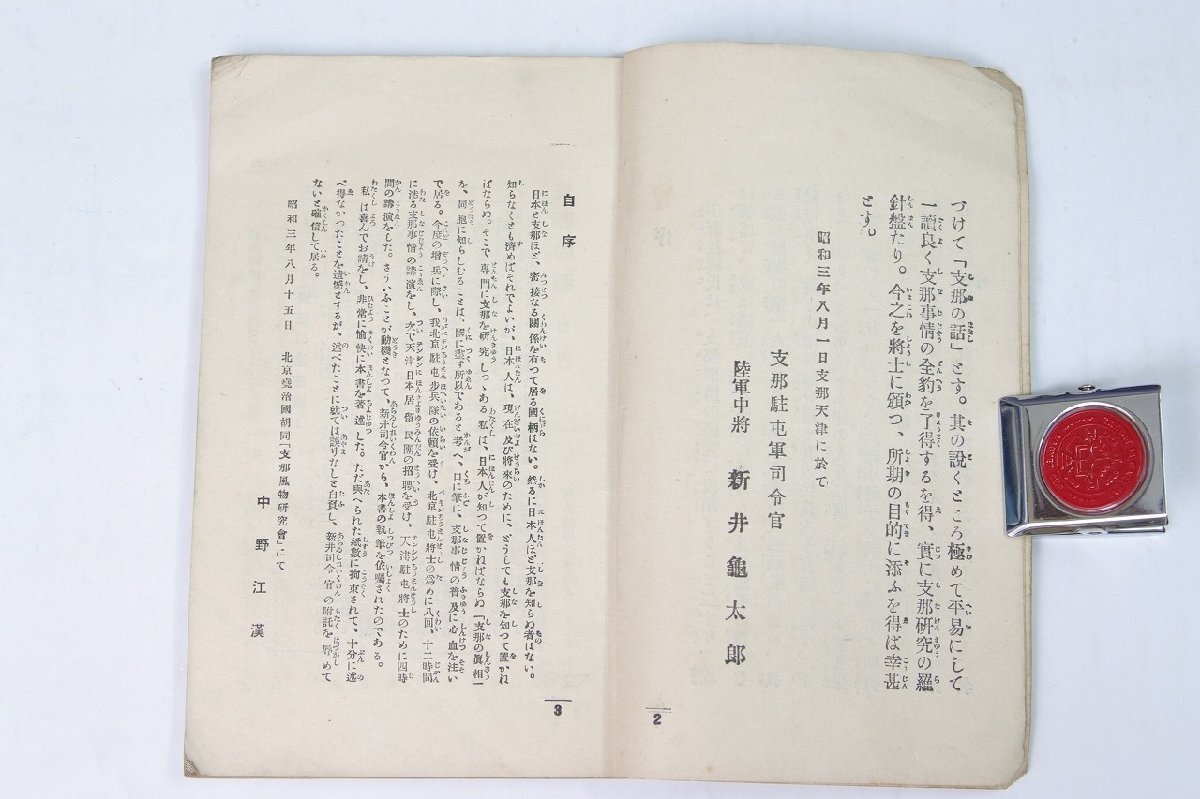 づけて「支那の話」とす。其の說くところ極めて平易にして
一讀良く支那事情の全豹を了得するを得、實に支那硏究の羅
針盤たり。今之を將士に頒つ、所期の目的に添ふを得ば幸甚
とす。
昭和三年八月一日支那天津に於て
支那駐屯軍司令官
陸軍中將 新井龜太郞
2
自序
日本と支那ほど、密接なる關係を有つて居る國柄はない。然るに日本人ほど支那を知らぬ者はない。
知らなくとも濟めばそれでよいが、日本人は、現在及び將來のために、どうしても支那を知つて置かね
ばならぬ。そこで專門に支那を硏究しつゝある私は、日本人が知つて置かねばならぬ「支那の眞相」
を、同胞に知らしむることは、國に盡す所以であると考へ、口に筆に、支那事情の普及に心血を注い
で居る。今度の增兵に際し、我北京駐屯步兵隊の依賴を受け、北京駐屯將士の爲めに八回、十二時間
に涉る支那事情の講演をし、次で天津日本居留民團の招聘を受け、天津駐屯將士のために四時
間の講演をした。さういふことが動機となつて、新井司令官から、本書の執筆を依囑されたのである。
私は喜んでお請をし、非常に愉快に本書を著述した。ただ與へられた紙數に拘束されて、十分に述
べ得なかつたことを遺憾とするが、述べたことに就ては誤りなしと自負し、新井司令官の附託を辱めて
ないと確信して居る。
昭和三年八月十五日 北京堯治國胡同「支那風物硏究會」にて
中野江漢
3